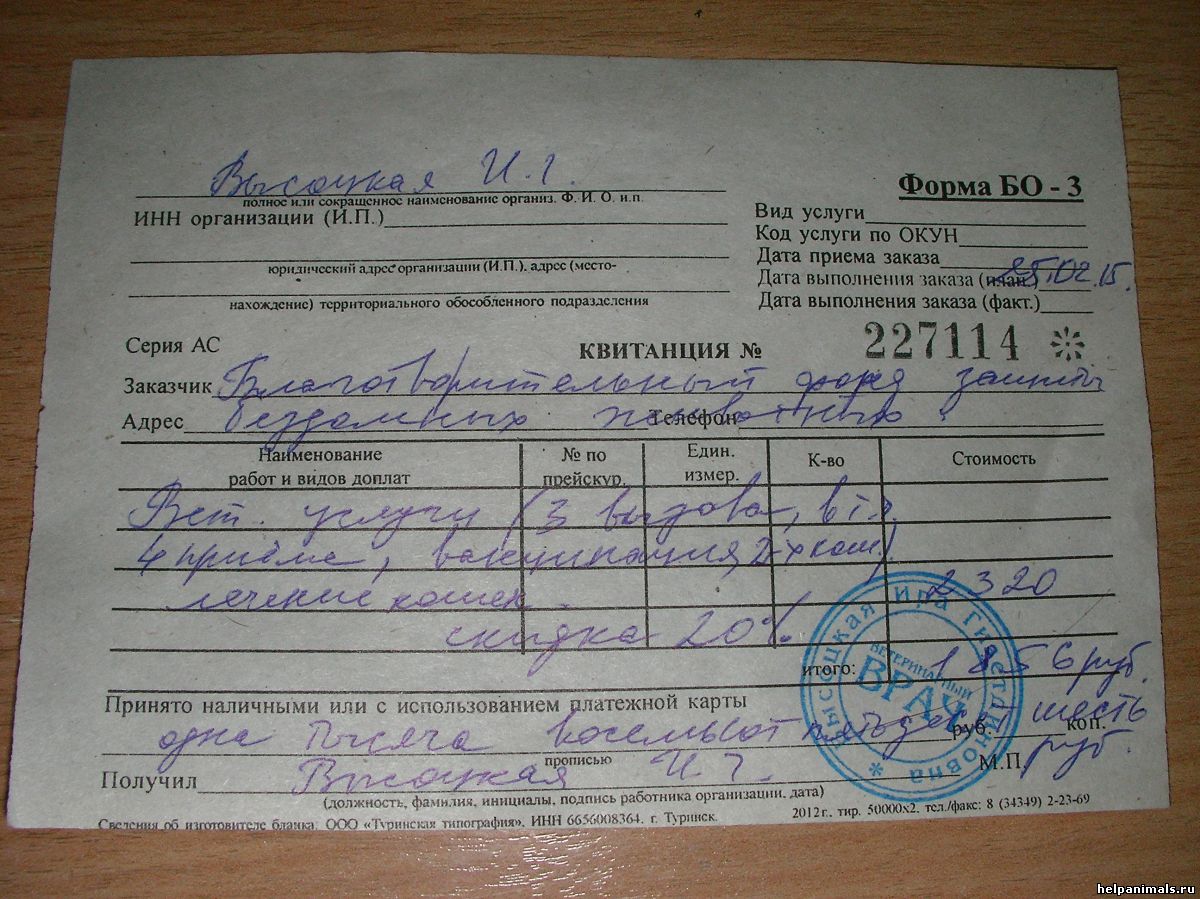 Высоцкая И.Г.
полное или сокращенное наименование организ. Ф. И. О. и.п.
Форма БО - 3
ИНН организации (И.П.)
Вид услуги
Код услуги по ОКУН
Дата приема заказа
юридический адрес организации (И.П.), адрес (место-
Дата выполнения заказа (план.) 25.02.15.
нахождение) территориального обособленного подразделения
Дата выполнения заказа (факт.)
Серия АС
КВИТАНЦИЯ № 227114
Заказчик Благотворительный фонд защиты
Адрес бездомных животных. Телефон
Наименование работ и видов доплат
№ по прейскур.
Един. измер.
К-во
Стоимость
Вет. услуги (3 выезда, в т.ч.
4 приёма, вакцинация 2-х кош.)
лечение кошек. 2320
скидка 20%
итого: 1856 руб.
Принято наличными или с использованием платежной карты
одна тысяча восемьсот пятьдесят шесть руб. руб. коп.
прописью
Получил Высоцкая И.Г. М.П.
(должность, фамилия, инициалы, подпись работника организации, дата)
Сведения об изготовителе бланка: ООО «Туринская типография», ИНН 6656008364, г. Туринск.
2012г., тир. 50000х2. тел./факс: 8 (34349) 2-23-69
Высоцкая Ира Гиметдиновна
ВЕТЕРИНАРНЫЙ
ВРАЧ
helpanimals.ru